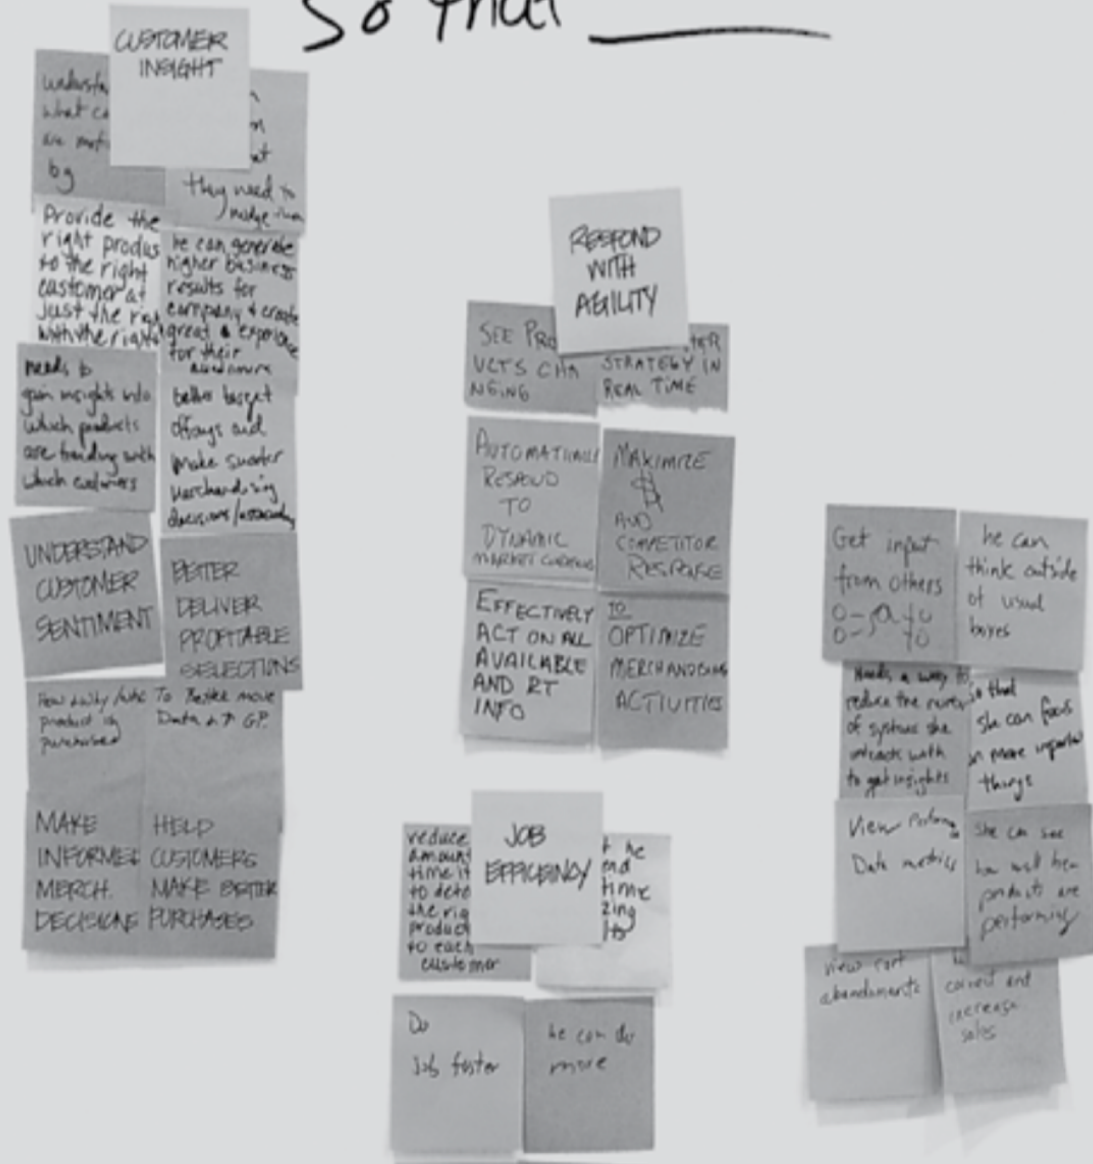 So that
CUSTOMER
INSIGHT
what
by
they need to
nudge
Provide the
right
to the right
customer at
just the
with the right
he can generate
higher business
results for
company & create
great experience
for their
needs to
gain insights into
which products
are trending with
which customers
better target
and
make smarter
merchandising
decisions/
UNDERSTAND
CUSTOMER
SENTIMENT
BETTER
DELIVER
PROFITABLE
SELECTIONS
product is
purchased
To Better move
Data & ↑ GP.
MAKE
INFORMED
MERCH.
DECISIONS
HELP
CUSTOMERS
MAKE BETTER
PURCHASES
RESPOND
WITH
AGILITY
SEE PROD
UCTS CHA
NGING
STRATEGY IN
REAL TIME
AUTOMATICALLY
RESPOND
TO
DYNAMIC
MARKET
MAXIMIZE
$
AND
COMPETITOR
RESPONSE
EFFECTIVELY
ACT ON ALL
AVAILABLE
AND RT
INFO
TO
OPTIMIZE
MERCHANDISING
ACTIVITIES
JOB
EFFICIENCY
reduce
amount
time it
to
the
product
to each
customer
he
time
Do
Job faster
he can do
more
Get input
from others
he can
think outside
of usual
boxes
Needs a way to
reduce the
of systems she
interacts with
to get insights
so that
she can focus
on more important
things
View
Data metrics
She can see
how well her
products are
performing
view cart
abandonments
convert and
increase
sales